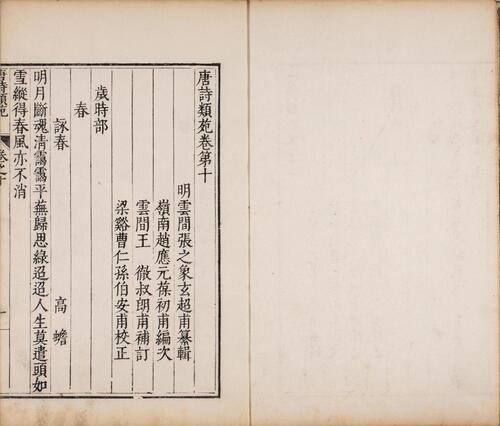 唐詩類苑卷第十
明雲間張之象玄超甫纂輯
嶺南趙應元葆初甫編次
雲間王　徹叔朗甫補訂
梁谿曹仁孫伯安甫校正
歲時部
春
詠春　高蟾
明月斷魂清靄靄平蕪歸思綠迢迢人生莫遣頭如
雪縱得春風亦不消
唐詩類苑
卷之十
一